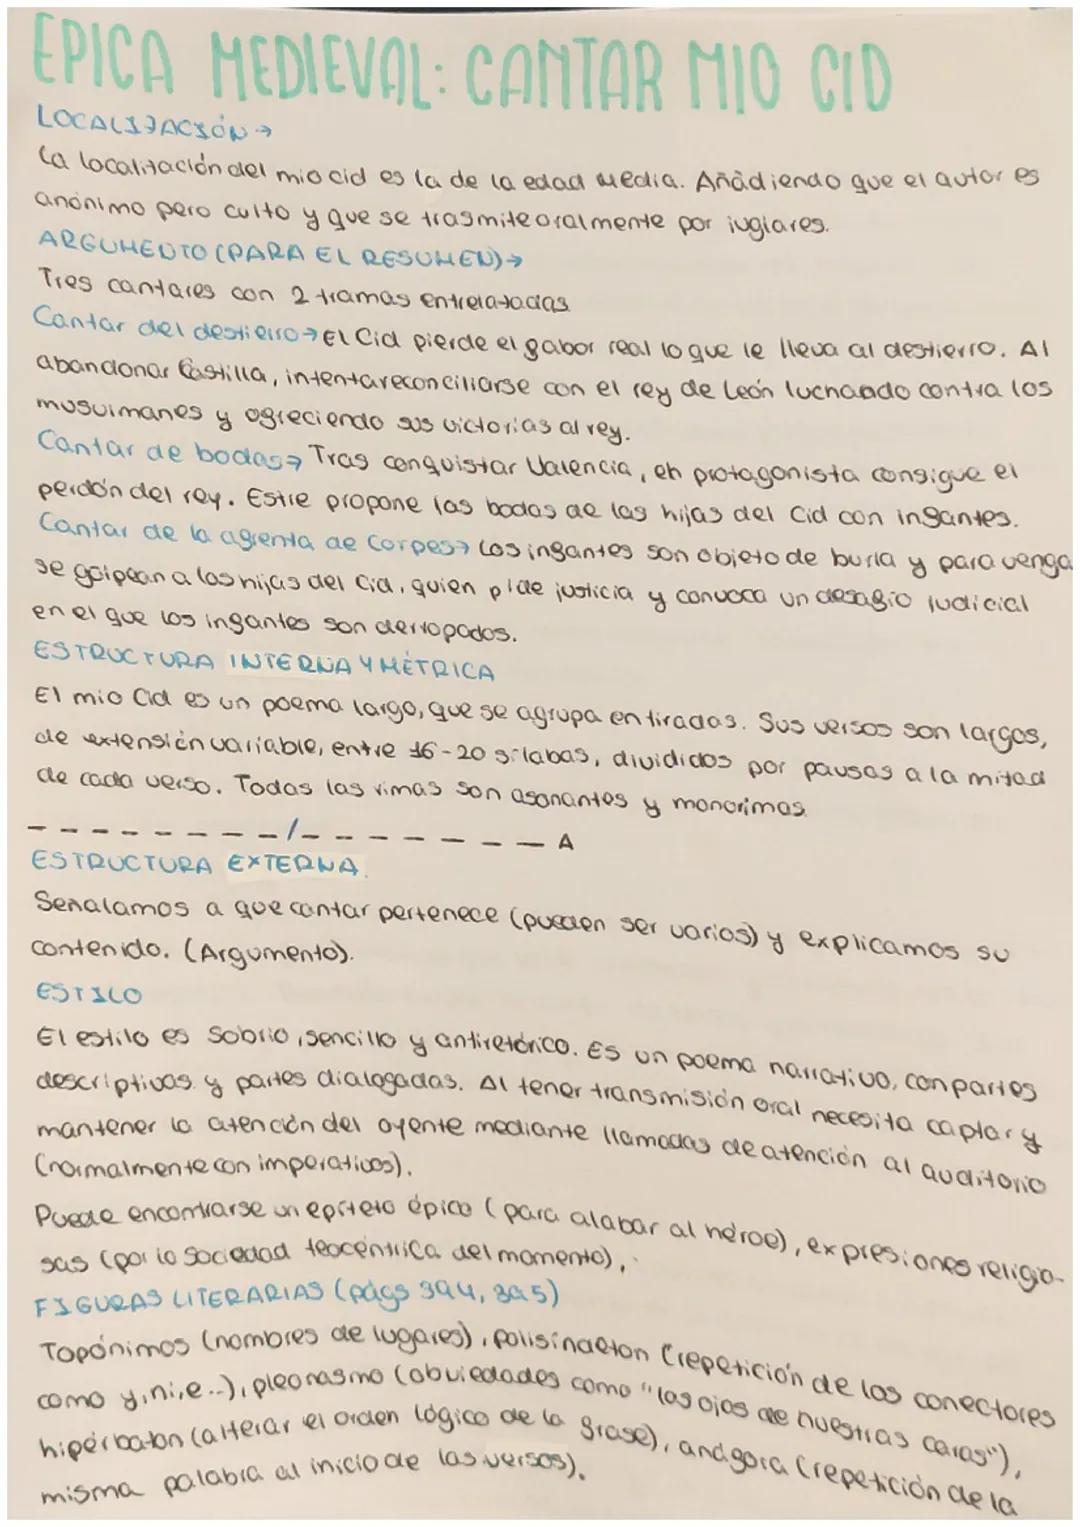 EPICA MEDIEVAL: CANTAR MIO CID
LOCALIZACIÓN →
La localización del mio cid es la de la edad Media. Añadiendo que el autor es
anónimo pero culto y que se trasmite oralmente por juglares.
ARGUMENTO (PARA EL RESUMEN) →
Tres cantares con 2 tramas entrelazadas
Cantar del destierro → El Cid pierde el fabor real lo que le lleva al destierro. Al
abandonar Castilla, intenta reconciliarse con el rey de León luchando contra los
musulmanes y ofreciendo sus victorias al rey.
Cantar de bodas → Tras conquistar Valencia, eh protagonista consigue el
perdón del rey. Estre propone las bodas de las hijas del Cid con infantes.
Cantar de la afrenta de Corpes → Los infantes son objeto de burla y para venga
se golpean a las hijas del Cid, quien pide justicia y convoca un desafio judicial
en el que los infantes son derropados.
ESTRUCTURA INTERNA Y MÉTRICA
El mio Cid es un poema largo, que se agrupa en tiradas. Sus versos son largos,
de extensión variable, entre 16-20 sílabas, divididos por pausas a la mitad
de cada verso. Todas las rimas son asonantes y monorimas.
- - - - - - - - - / - - - - - - - - - A
ESTRUCTURA EXTERNA.
Señalamos a que cantar pertenece (pueden ser varios) y explicamos su
contenido. (Argumento).
ESTILO
El estilo es sobrio, sencillo y antiretórico. Es un poema narrativo, con partes
descriptivas y partes dialogadas. Al tener transmisión oral necesita captar y
mantener la atención del oyente mediante llamadas de atención al auditorio
(normalmente con imperativos).
Puede encontrarse un epíteto épico (para alabar al héroe), expresiones religio-
sas (por la sociedad teocéntrica del momento),
FIGURAS LITERARIAS (págs 394, 395)
Topónimos (nombres de lugares), polisíndeton (repetición de los conectores
como y, ni, e...), pleonasmo (obviedades como "los ojos de nuestras caras"),
hipérbaton (alterar el orden lógico de la frase), anáfora (repetición de la
misma palabra al inicio de las versos).